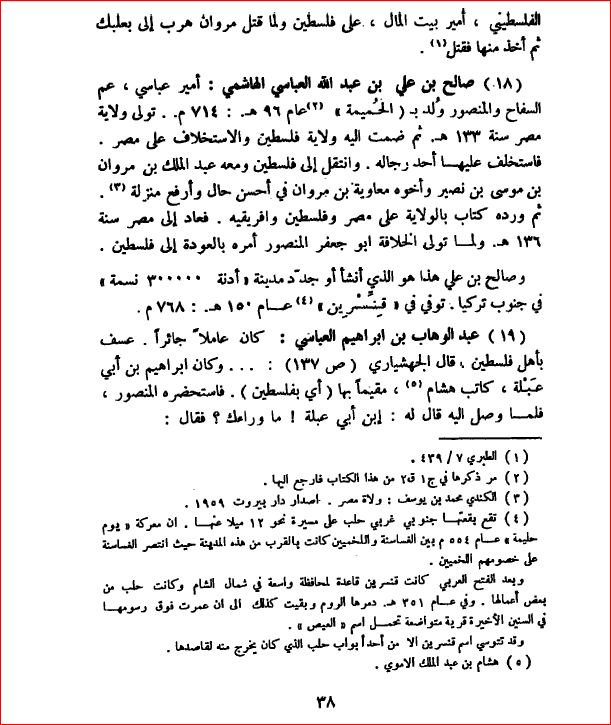 الفلسطيني ، أمير بيت المال ، على فلسطين ولما قتل مروان هرب إلى بعلبك
ثم أخذ منها فقتل(١) .
(١٨) صالح بن علي بن عبد الله العباسي الهاشمي : أمير عباسي ، عم
السفاح والمنصور وُلد بـ ( الحُميمة » (٢)عام ٩٦ هـ . : ٧١٤ م . تولى ولاية
مصر سنة ١٣٣ هـ. ثم ضمت اليه ولاية فلسطين والاستخلاف على مصر .
فاستخلف عليهـا أحد رجاله . وانتقل إلى فلسطين ومعه عبد الملك بن مروان
بن موسى بن نصير وأخوه معاوية بن مروان في أحسن حال وأرفع منزلة (٣) .
ثم ورده كتاب بالولاية على مصر وفلسطين وافريقيه . فعاد إلى مصر سنة
١٣٦ هـ. ولمـا تولى الخلافة ابو جعفر المنصور أمره بالعودة إلى فلسطين .
وصالح بن علي هذا هو الذي أنشأ أو جدّد مدينة « أدنة ٣٠٠٠٠٠ نسمة »
في جنوب تركيا . توفي في « قِنِّسْرين » (٤) عـام ١٥٠ هـ. : ٧٦٨ م .
(١٩) عبد الوهاب بن ابراهيم العباسي : كان عاملاً جائراً . عسف
بأهل فلسطين . قال الجهشياري ( ص ١٣٧) : . . . وكان ابراهيم بن أبي
عَبْلة ، كاتب هشام (٥) ، مقيماً بها ( أي بفلسطين ) . فاستحضره المنصور ،
فلمـا وصل اليه قال له : إبن أبي عبلة ! ما وراءك ؟ فقال :
(١) الطبري ٧ / ٤٣٩ .
(٢) مر ذكرها في ج١ ق٢ من هذا الكتاب فارجع اليها .
(٣) الكندي محمد بن يوسف : ولاة مصر . اصدار دار بيروت ١٩٥٩ .
(٤) تقع بقعتها جنوبي غربي حلب على مسيرة نحو ١٢ ميلا عنها . ان معركة « يوم
حليمة » عـام ٥٥٤ م بين الغساسنة واللخميين كانت بالقرب من هذه المدينة حيث انتصر الغساسنة
على خصومهم اللخميين .
وبعد الفتح العربي كانت قنسرين قاعدة لمحافظة واسعة في شمال الشام وكانت حلب من
بعض أعمالها . وفي عـام ٣٥١ هـ دمرها الروم وبقيت كذلك الى ان عمرت فوق رسومهـا
في السنين الأخيرة قرية متواضعة تحمـل اسم « العيص » .
وقد تنوسي اسم قنسرين الا من أحد أبواب حلب الذي كان يخرج منه لقاصدها .
(٥) هشام بن عبد الملك الاموي .
٣٨